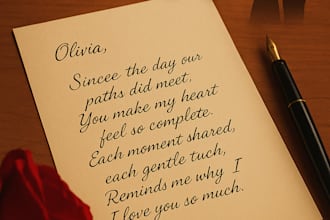 Olivia,
Sincee the day our
paths did meet,
You make my heart
feel so complete.
Each moment shared,
each gentle tuch,
Reminds me why I
I love you so much.